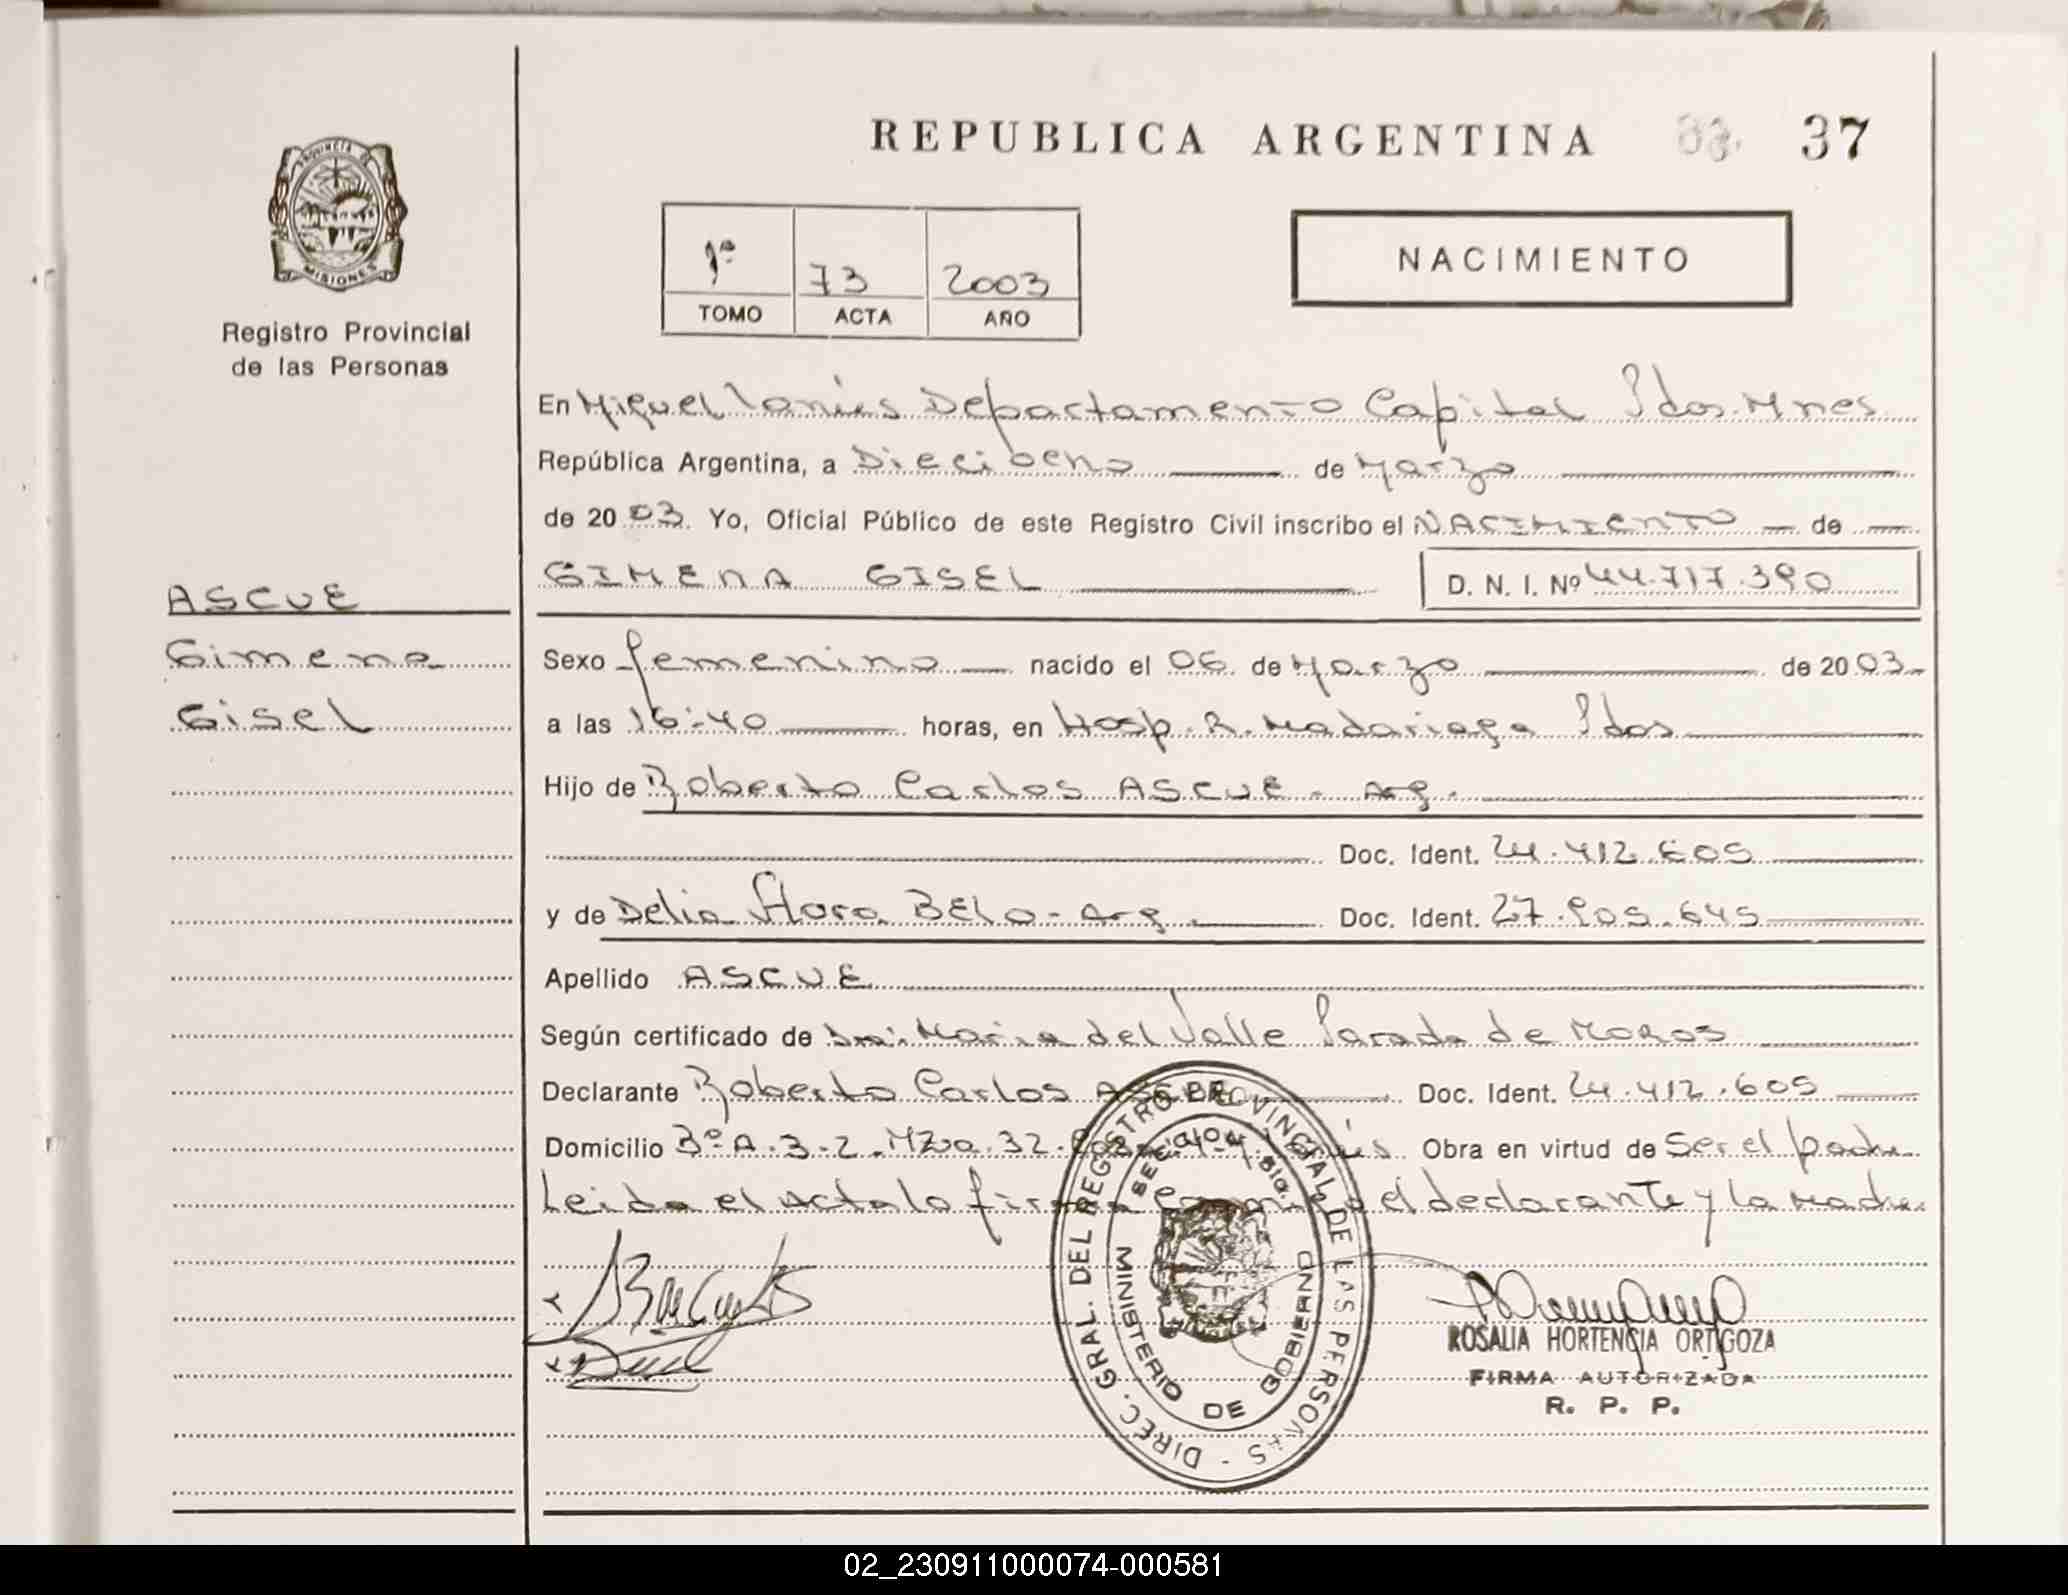 REPUBLICA ARGENTINA 37
PROVINCIA DE
MISIONES
Registro Provincial
de las Personas
1º 73 2003
TOMO ACTA AÑO
NACIMIENTO
En Miguel Lanús Departamento Capital Pdas. Mnes
República Argentina, a Dieciocho de Marzo
de 2003. Yo, Oficial Público de este Registro Civil inscribo el NACIMIENTO de
GIMENA GISEL D. N. I. Nº 44.717.390
ASCUE
Gimena
Gisel
Sexo femenino nacido el 06 de Marzo de 2003
a las 16:40 horas, en Hosp. R. Madariaga Pdas
Hijo de Roberto Carlos ASCUE. Arg.
Doc. Ident. 24.412.605
y de Delia Flora BELO - Arg. Doc. Ident. 27.905.645
Apellido ASCUE
Según certificado de Dra: Maria del Valle Parada de
Declarante Roberto Carlos ASCUE Doc. Ident. 24.412.605
Domicilio Bº A.3-2. Mza. 32. Obra en virtud de Ser el padre
Leida el Acta la firma el declarante y la Madre.
DIREC. GRAL. DEL REGISTRO PROVINCIAL DE LAS PERSONAS -
MINISTERIO DE GOBIERNO
ROSALIA HORTENCIA ORTIGOZA
FIRMA AUTORIZADA
R. P. P.
02_230911000074-000581